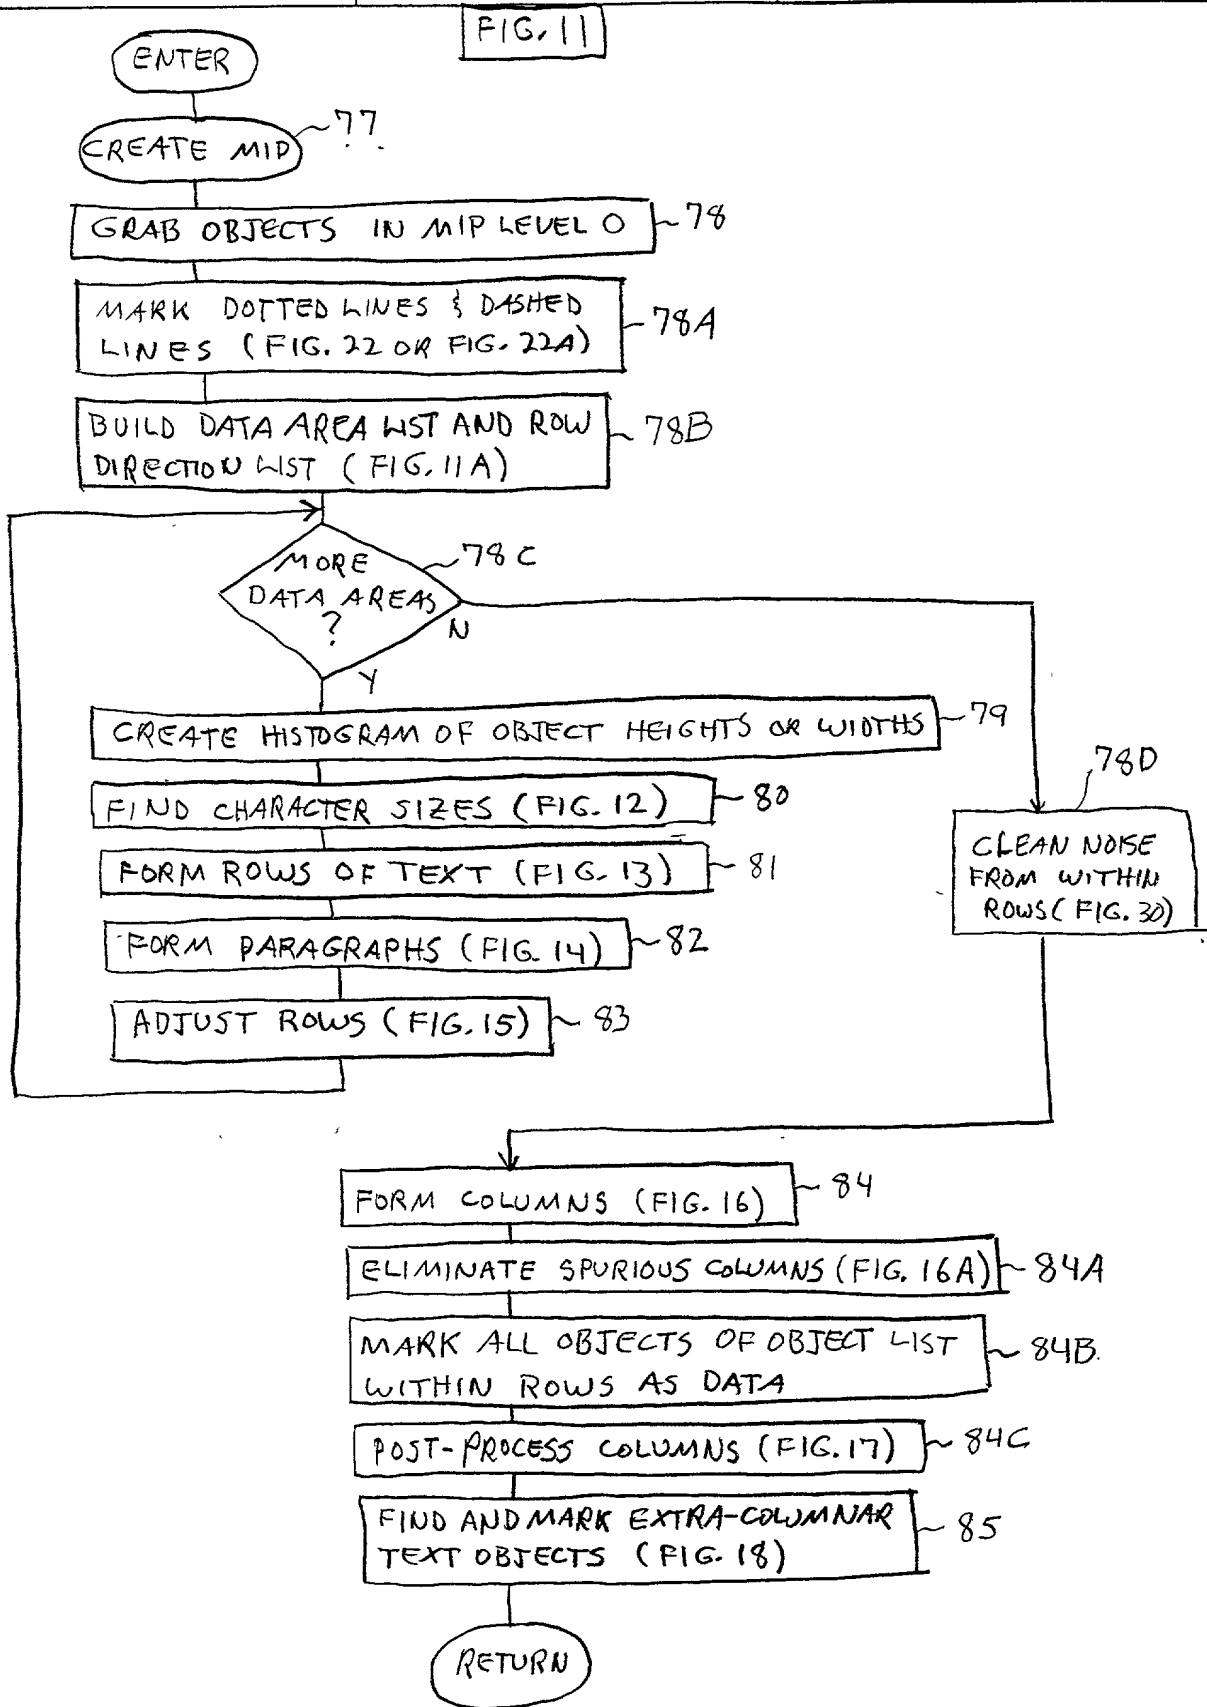 FIG. 11
ENTER
CREATE MIP
77
GRAB OBJECTS IN MIP LEVEL 0
78
MARK DOTTED LINES & DASHED
LINES (FIG. 22 OR FIG. 22A)
78A
BUILD DATA AREA LIST AND ROW
DIRECTION LIST (FIG. 11A)
78B
MORE
DATA AREAS
?
78C
N
Y
CREATE HISTOGRAM OF OBJECT HEIGHTS OR WIDTHS
79
FIND CHARACTER SIZES (FIG. 12)
80
FORM ROWS OF TEXT (FIG. 13)
81
FORM PARAGRAPHS (FIG. 14)
82
ADJUST ROWS (FIG. 15)
83
78D
CLEAN NOISE
FROM WITHIN
ROWS (FIG. 30)
FORM COLUMNS (FIG. 16)
84
ELIMINATE SPURIOUS COLUMNS (FIG. 16A)
84A
MARK ALL OBJECTS OF OBJECT LIST
WITHIN ROWS AS DATA
84B
POST-PROCESS COLUMNS (FIG. 17)
84C
FIND AND MARK EXTRA-COLUMNAR
TEXT OBJECTS (FIG. 18)
85
RETURN